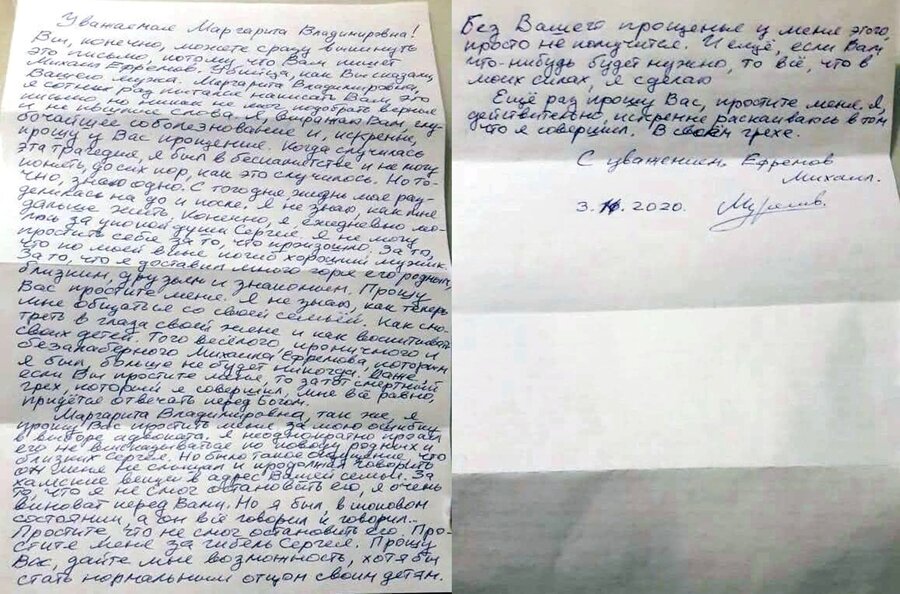 Уважаемая Маргарита Владимировна!
Вы, конечно, можете сразу выкинуть
это письмо, потому что Вам пишет
Михаил Ефремов. Убийца, как Вы сказали,
Вашего мужа. Маргарита Владимировна,
я сотни раз пытался написать Вам это
письмо, но никак не мог подобрать верные
и не лживые слова. Я, выражаю Вам глу-
бочайшее соболезнование и, искренне,
прошу у Вас прощение. Когда случилась
эта трагедия, я был в беспамятстве и не могу
понять до сих пор, как это случилось. Но то-
чно, знаю одно. С того дня жизнь моя раз-
делилась на до и после. Я не знаю, как мне
дальше жить. Конечно, я ежедневно мо-
люсь за упокой души Сергея и не могу
простить себе за то, что произошло. За то,
что по моей вине погиб хороший мужик.
За то, что я доставил много горя его родным,
близким, друзьям и знакомым. Прошу
Вас простите меня. Я не знаю, как теперь
мне общаться со своей семьёй. Как смо-
треть в глаза своей жене и как воспитывать
своих детей. Того весёлого, ироничного и
безалаберного Михаила Ефремова, которым
я был, больше не будет никогда. Даже
если Вы простите меня, то за этот смертный
грех, который я совершил, мне всё равно,
придётся отвечать перед Богом.
Маргарита Владимировна, так же, я
прошу Вас простить меня за мою ошибку
в выборе адвоката. Я неоднократно просил
его не высказываться по поводу родных и
близких Сергея. Но было такое ощущение, что
он меня не слышал и продолжал говорить
хамские вещи в адрес Вашей семьи. За
то, что я не смог остановить его, я очень
виноват перед Вами. Но я был в шоковом
состоянии, а он всё говорил и говорил...
Простите, что не смог остановить его. Про-
стите меня за гибель Сергея. Прошу
Вас, дайте мне возможность, хотя бы
стать нормальным отцом своим детям.
Без Вашего прощенье у меня этого,
просто не получится. И ещё, если Вам
что-нибудь будет нужно, то всё, что в
моих силах, я сделаю
Ещё раз прошу Вас, простите меня. Я,
действительно, искренне раскаиваюсь в том
что я совершил. В своём грехе.
С уважением, Ефремов
Михаил.
2020.